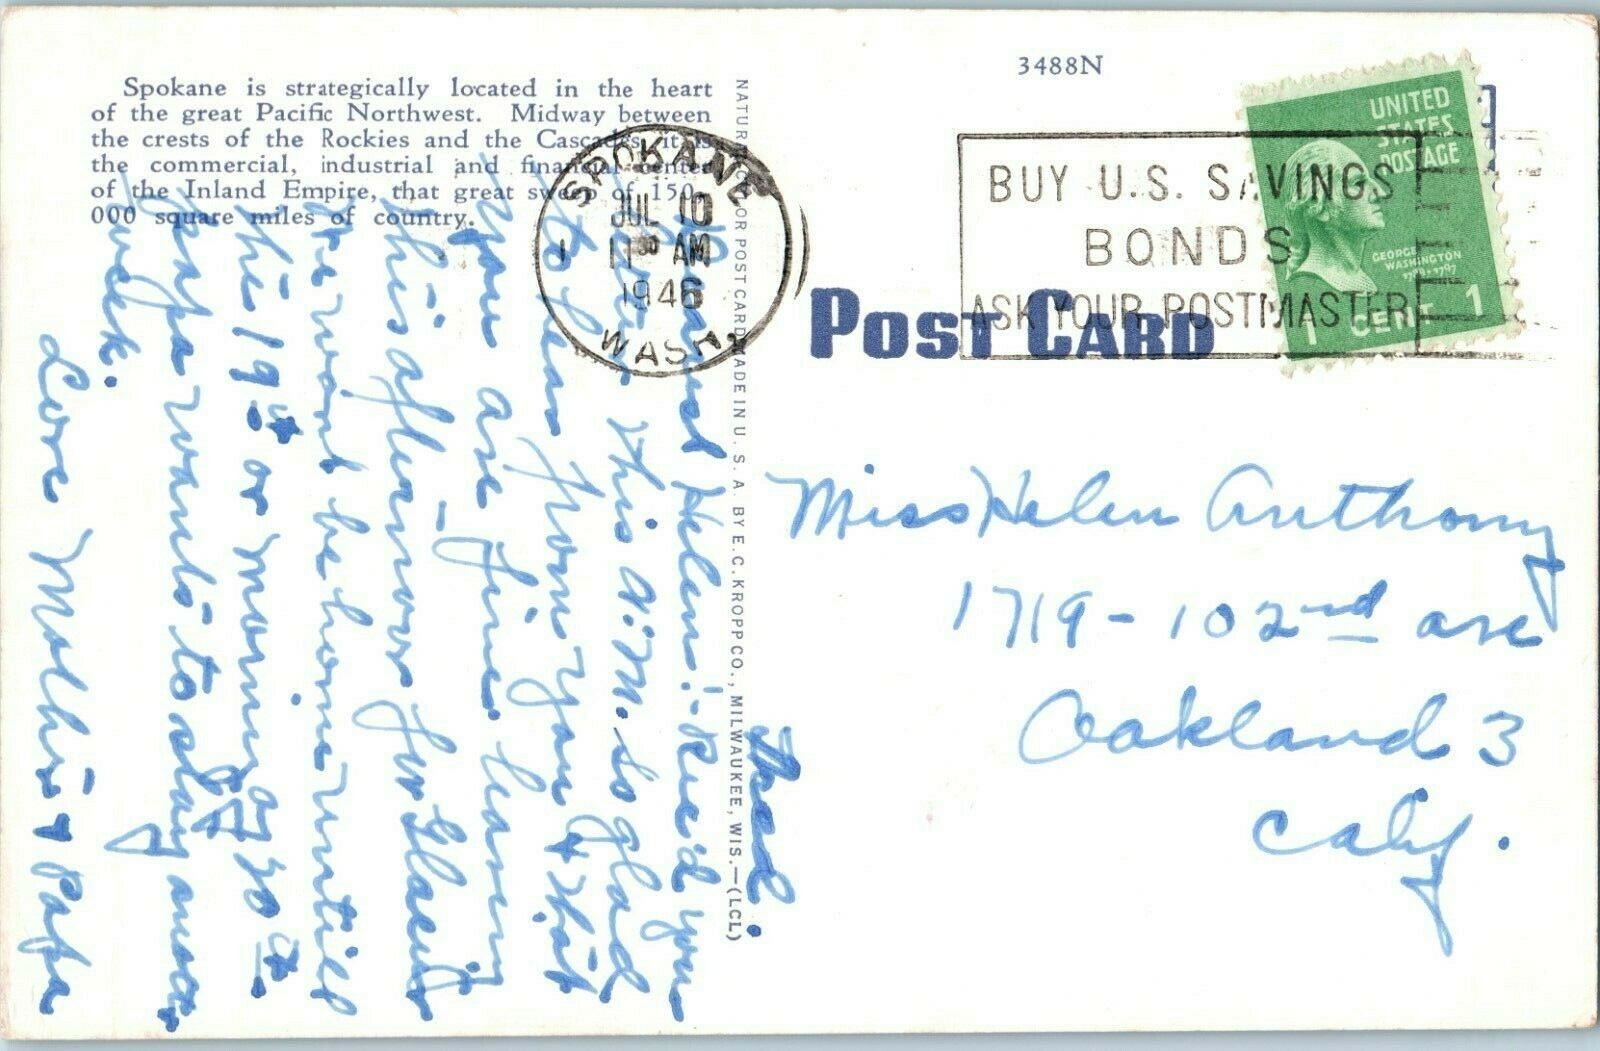 3488N
Spokane is strategically located in the heart
of the great Pacific Northwest. Midway between
the crests of the Rockies and the Cascades, it is
the commercial, industrial and financial center
of the Inland Empire, that great sweep of 150,-
000 square miles of country.
SPOKANE
JUL 10
11 00 AM
1946
WASH.
1
BUY U.S. SAVINGS
BONDS
ASK YOUR POSTMASTER
UNITED
STATES
POSTAGE
GEORGE
WASHINGTON
1789-1797
1 CENT 1
POST CARD
COLOR POST CARD MADE IN U. S. A. BY E. C. KROPP CO., MILWAUKEE, WIS.—(LCL)
Wed.
Dearest Helen:- Rec'd your
this A.M. so glad
to hear from you & that
you are fine. leaving
this afternoon for Glacier
& wont be home until
the 19th or morning 20th.
Papa wants to stay another
week.
Love Mother & Papa
Miss Helen Anthony
1719 - 102nd ave
Oakland 3
Calif.